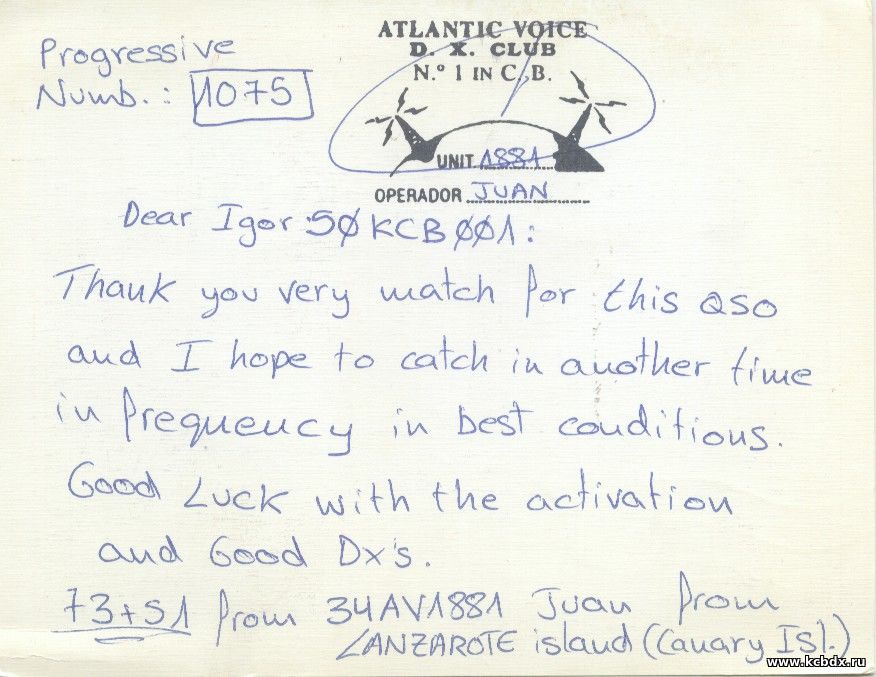 Progressive
Numb.: 1075
ATLANTIC VOICE
D. X. CLUB
N.º 1 IN C. B.
UNIT 1881
OPERADOR JUAN
Dear Igor 50KCB001:
Thank you very match for this QSO
and I hope to catch in another time
in frequency in best conditions.
Good Luck with the activation
and Good Dx's.
73+51 from 34AV1881 Juan from
LANZAROTE island (Canary Isl.)
www.kcbdx.ru